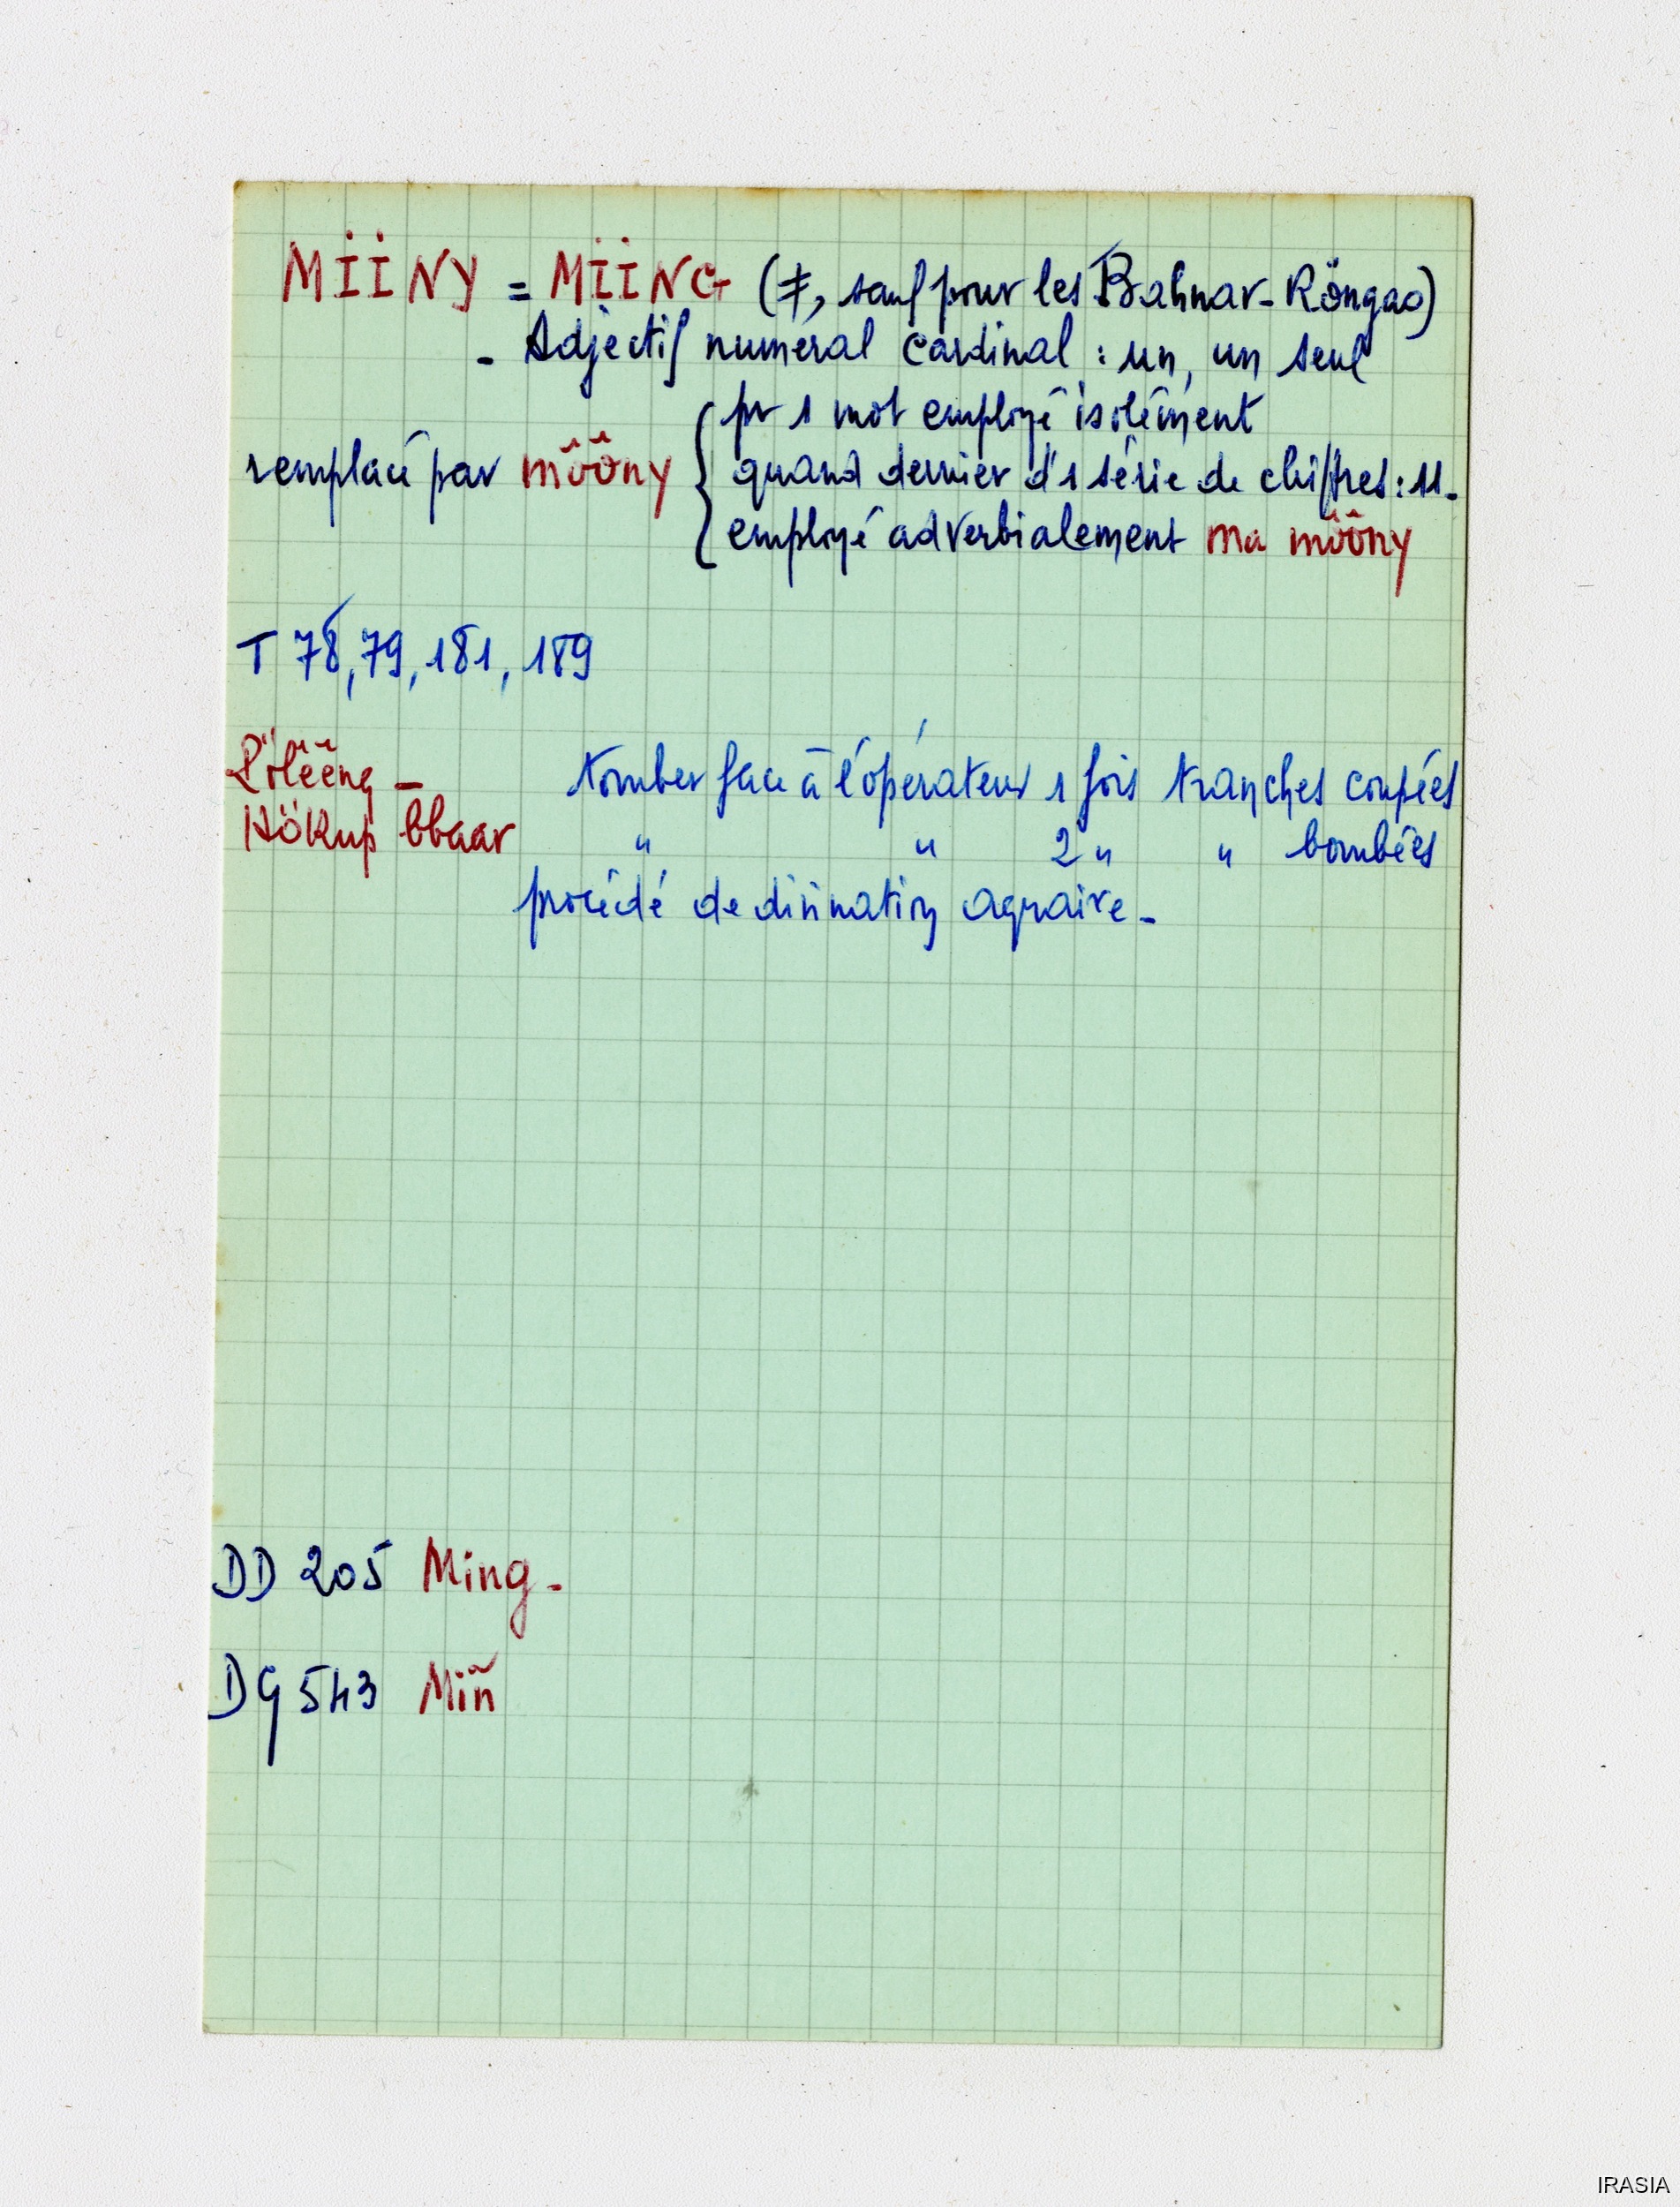 MÏÏNY = MÏÏNG (≠, sauf pour les Bahnar-Röngao)
- Adjectif numéral cardinal : un, un seul
pr 1 mot employé isolément
remplacé par môôny { quand dernier d'1 série de chiffres : 11.
employé adverbialement ma môôny
T 78, 79, 181, 189
- tomber face à l'opérateur 1 fois tranches coupées
Hökup bbaar " " 2 " " bombées
procédé de divination agraire -
DD 205 Ming -
DG 543 Miñ
IRASIA